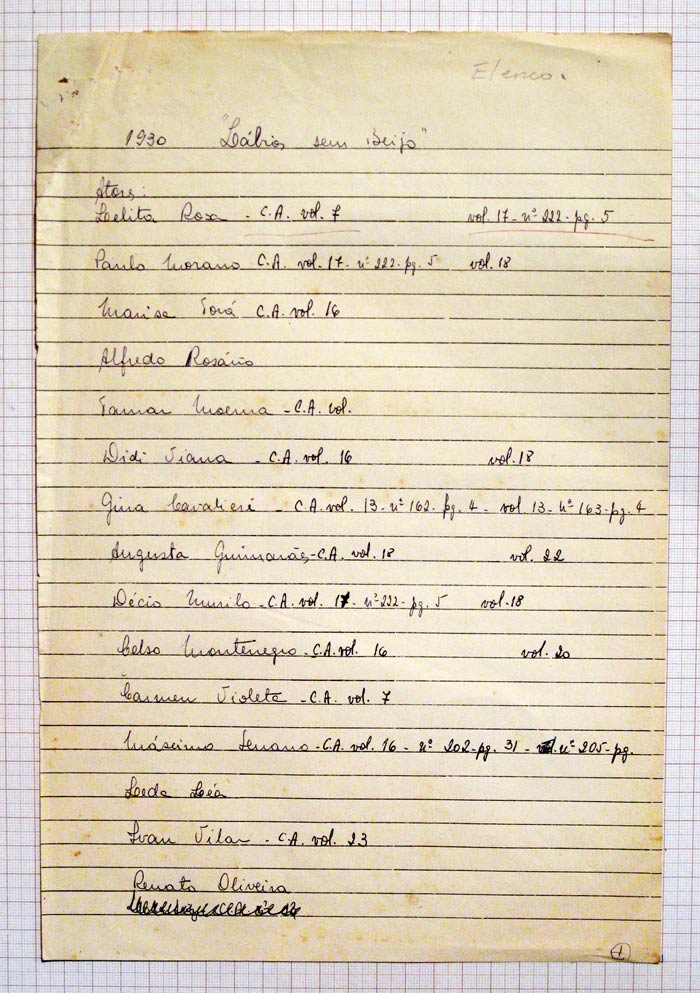 Elenco.
1930 "Lábios sem Beijo"
Atores:
Lelita Rosa - C.A. vol. 7 vol. 17 - nº 222 - pg. 5
Paulo Morano C.A. vol. 17 - nº 222 - pg. 5 vol. 18
Marisa Torá C.A. vol. 16
Alfredo Rosário
Tamar Moema - C.A. vol.
Didi Viana - C.A. vol. 16 vol. 18
Gina Cavalieri - C.A. vol. 13 - nº 162 - pg. 4 - vol. 13 - nº 163 - pg. 4
Augusta Guimarães - C.A. vol. 18 vol. 22
Décio Murilo - C.A. vol. 17 - nº 222 - pg. 5 vol. 18
Celso Montenegro - C.A. vol. 16 vol. 20
Carmen Violeta - C.A. vol. 7
Máximo Serrano - C.A. vol. 16 - nº 202 - pg. 31 - nº 205 - pg.
Leda Léa
Ivan Vilar - C.A. vol. 23
Renato Oliveira
1